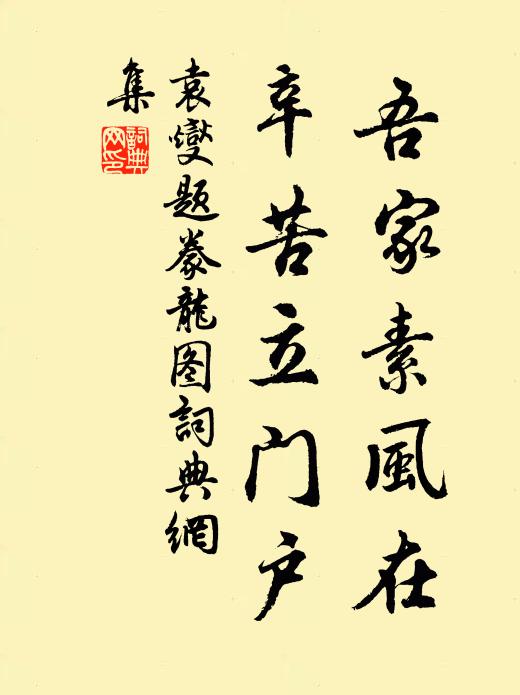 吾家素風在
辛苦立门户
袁燮题豢龍图詞典網
集
詞典
网印